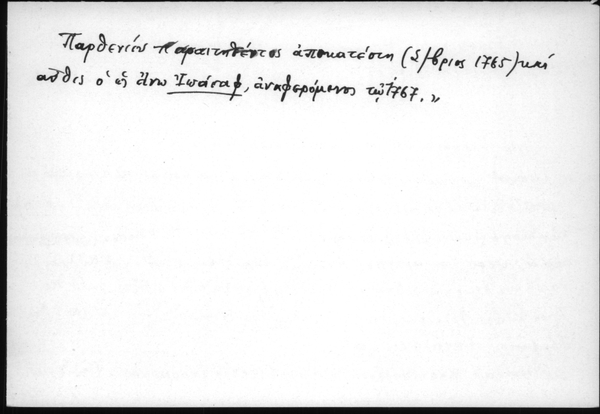 Παρθενίου παραιτηθέντος ἀποκατέστη (Σ/βριος 1765) καί
αὖθις ὁ ὡς ἄνω Ἰωάσαφ, ἀναφερόμενος τῷ 1767.»